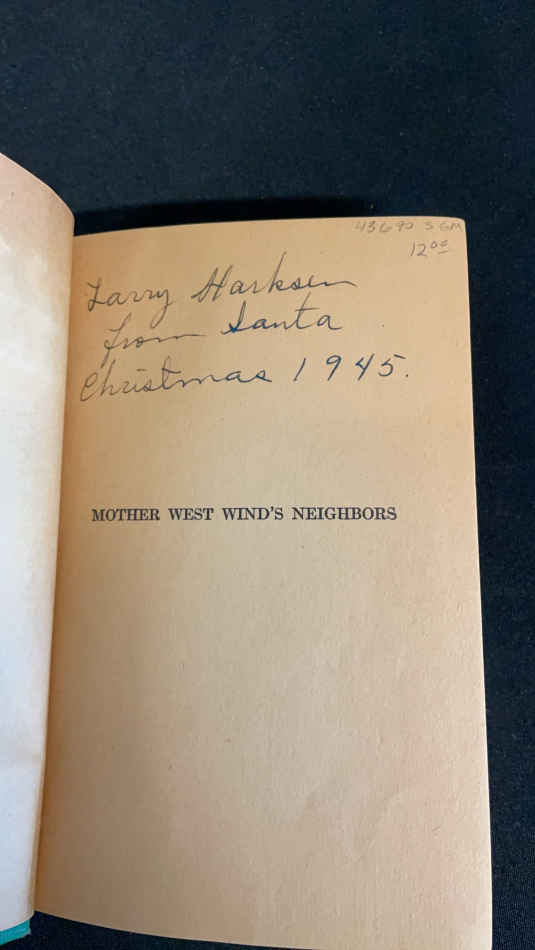 12⁰⁰
Larry Harksen
from Santa
Christmas 1945.
MOTHER WEST WIND'S NEIGHBORS